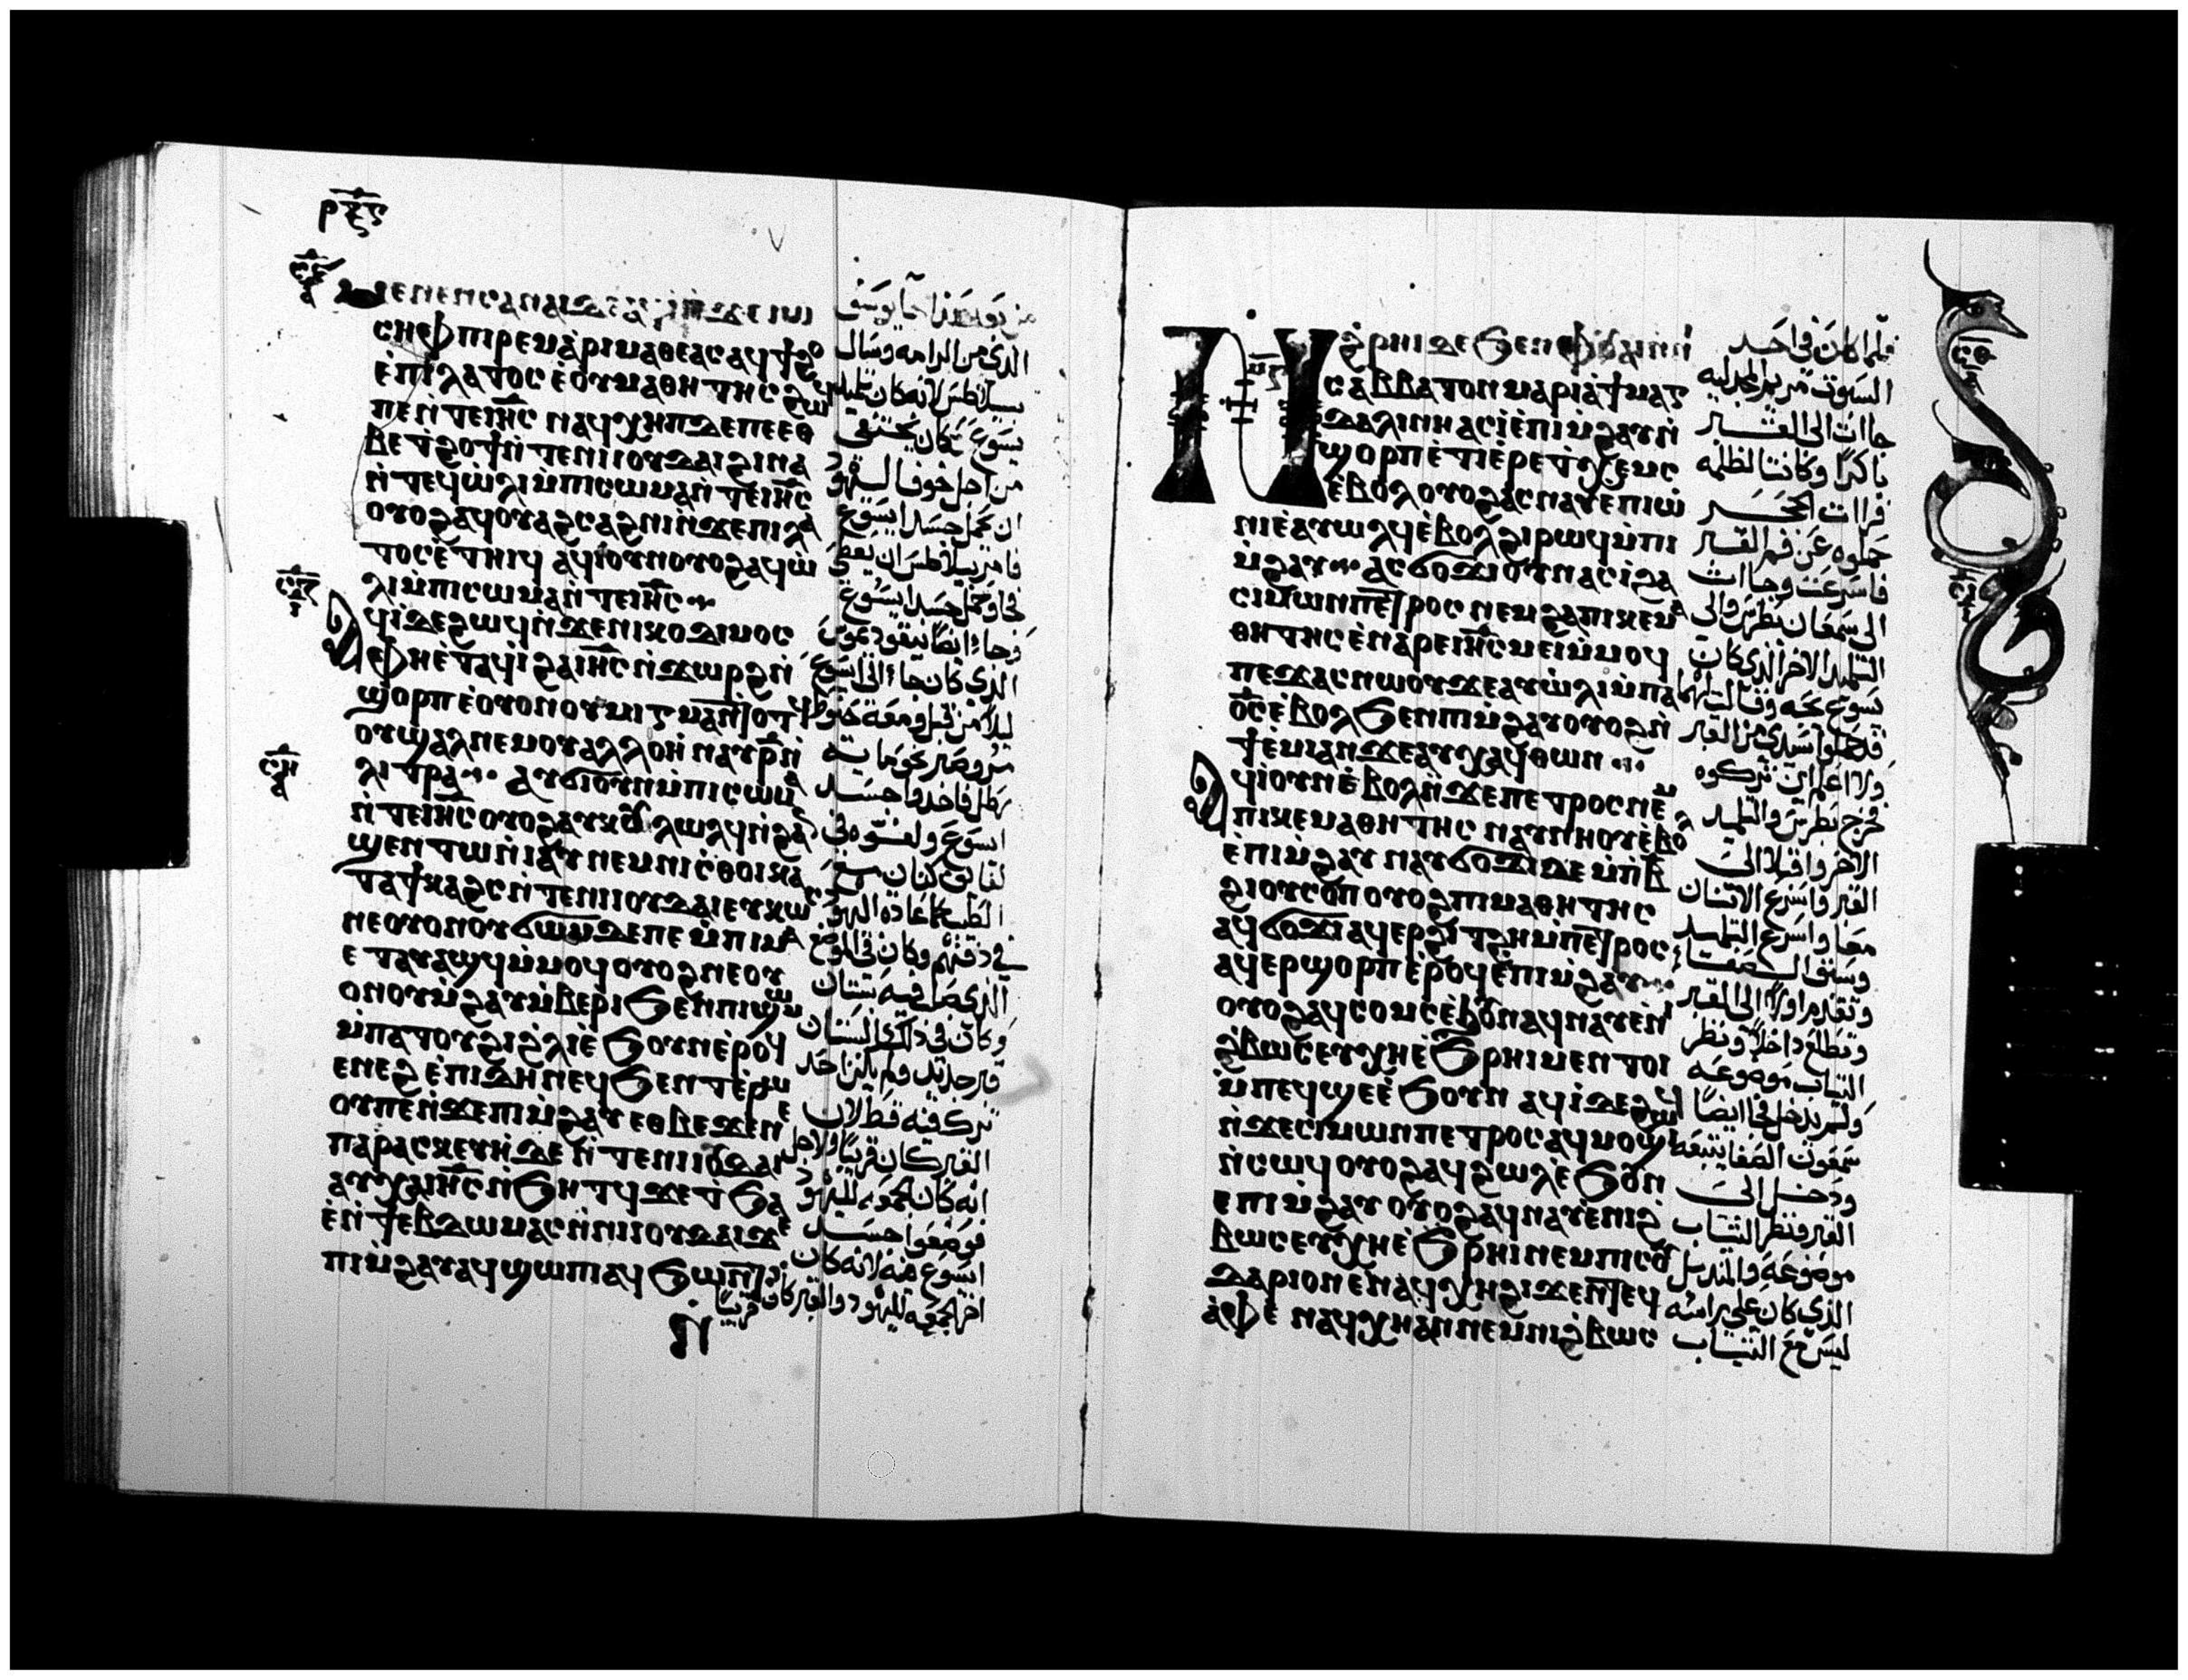 ⲣⲝⲋ
ⲙⲉⲛⲉⲛⲥⲁⲛⲁⲓ ⲇⲉ
ⲥⲏⲫ ⲡⲓⲣⲉⲙⲁⲣⲓⲙⲁⲑⲉⲁⲥ ⲁϥϯϩⲟ
ⲉⲡⲓⲗⲁⲧⲟⲥ ⲉⲟⲩⲙⲁⲑⲏⲧⲏⲥ ϩⲱϥ
ⲡⲉ ⲛⲧⲉ ⲓⲏⲥ ⲛⲁϥⲭⲏⲡ ⲇⲉ ⲡⲉ ⲉⲑ
ⲃⲉ ⲧϩⲟϯ ⲛⲧⲉ ⲛⲓⲓⲟⲩⲇⲁⲓ ϩⲓⲛⲁ
ⲛⲧⲉϥⲱⲗⲓ ⲙⲡⲓⲥⲱⲙⲁ ⲛⲧⲉ ⲓⲏⲥ
ⲟⲩⲟϩ ⲁϥⲟⲩⲁϩⲥⲁϩⲛⲓ ⲛϫⲉ ⲡⲓⲗⲁ
ⲧⲟⲥ ⲉⲧⲏⲓϥ ⲁϥⲓ ⲟⲩⲛ ⲟⲩⲟϩ ⲁϥⲱ
ⲗⲓ ⲙⲡⲓⲥⲱⲙⲁ ⲛⲧⲉ ⲓⲏⲥ
ⲁϥⲓ ⲇⲉ ϩⲱϥ ⲛϫⲉ ⲛⲓⲕⲟⲇⲓⲙⲟⲥ
ⲫⲏ ⲉⲧⲁϥⲓ ϩⲁ ⲓⲏⲥ ⲛϫⲱⲣϩ ⲛ
ϣⲟⲣⲡ ⲉⲟⲩⲟⲛ ⲟⲩⲙⲓⲅⲙⲁ ⲛⲧⲟⲧϥ
ⲟⲩϣⲁⲗ ⲛⲉⲙ ⲟⲩⲁⲗⲗⲟⲏ ⲛⲁⲩⲣ ⲛ
ⲗⲓⲧⲣⲁ ⲁⲩϭⲓ ⲟⲩⲛ ⲙⲡⲓⲥⲱⲙⲁ
ⲛⲧⲉ ⲓⲏⲥ ⲟⲩⲟϩ ⲁⲩⲕⲟⲩⲗⲱⲗϥ ⲛϩⲁⲛ
ϣⲉⲛⲧⲱ ⲛⲓⲁⲩ ⲛⲉⲙ ⲛⲓⲥⲑⲟⲓ ⲕⲁ
ⲧⲁ ϯⲕⲁϩⲥ ⲛⲧⲉ ⲛⲓⲓⲟⲩⲇⲁⲓ ⲉⲩⲕⲱⲥ
ⲛⲉ ⲟⲩⲟⲛ ⲟⲩϭⲱⲙ ⲇⲉ ⲡⲉ ⲙⲡⲓⲙⲁ
ⲉⲧⲁⲩⲁϣϥ ⲙⲙⲟϥ ⲟⲩⲟϩ ⲛⲉ ⲟⲩ
ⲟⲛ ⲟⲩⲙϩⲁⲩ ⲙⲃⲉⲣⲓ ϧⲉⲛ ⲡⲓϭⲱⲙ
ⲙⲡⲁⲧⲟⲩϩⲓ ϩⲗⲓ ⲉϧⲟⲩⲛ ⲉⲣⲟϥ
ⲉⲛⲉϩ
ⲡⲉ ⲛϫⲉ ⲡⲓⲙϩⲁⲩ ⲉⲑⲃⲉ ϫⲉ ⲛⲉ
ⲡⲁⲣⲁⲥⲕⲉⲩⲏ ⲇⲉ ⲛⲧⲉ ⲛⲓⲓⲟⲩⲇⲁⲓ
ⲁⲩⲭⲁ ⲓⲏⲥ ⲛϧⲏⲧϥ ϫⲉ ⲧϧⲁ
ⲉ ⲛϯⲉⲃⲇⲱⲙⲁⲥ ⲛⲛⲓⲓⲟⲩⲇⲁⲓ ϫⲉ
ⲡⲓⲙϩⲁⲩ
من بعد هذا جا يوسف
الذي من الرامه وسال
بيلاطس لانه كان تلميد
يسوع وكان يختفى
من اجل خوف اليهود
ان يحمل جسد ايسوع
فامر بيلاطس ان يعطى
فجا وحمل جسد ايسوع
وجا ايضا نيقوديموس
الذي كان جا الى ايسوع
ليلا من قبل ومعه حنوط
مر وصبر نحو مايه
رطل فاخدوا جسد
ايسوع ولفوه فى
لفايف كتان مع
الطيب كعادة اليهود
في دفنهم وكان فى الموضع
الذي صلب فيه بستان
وكان فى ذلك البستان
قبر جديد ولم يكن احد
ترك فيه قط لان
القبر كان قريبا ولاجل
انه كان جمعه لليهود
فوضعوا جسد
ايسوع فيه لانه كان
اخر جمعه لليهود والقبر كان قريبا
ⲛϩⲣⲏⲓ ⲇⲉ ϧⲉⲛ ⲫⲟⲩⲁⲓ ⲛⲛⲓ
ⲥⲁⲃⲃⲁⲧⲟⲛ ⲙⲁⲣⲓⲁ ϯⲙⲁⲅ
ⲇⲁⲗⲓⲛⲏ ⲁⲥⲓ ⲉⲡⲓⲙϩⲁⲩ ⲛ
ϣⲟⲣⲡ ⲉⲧⲓ ⲉⲣⲉ ⲧⲭⲉⲙⲥ
ⲉⲃⲟⲗ ⲟⲩⲟϩ ⲁⲥⲛⲁⲩ ⲉⲡⲓⲱ
ⲛⲓ ⲉⲁⲩⲱⲗϥ ⲉⲃⲟⲗ ϩⲓⲣⲱϥ ⲙⲡⲓ
ⲙϩⲁⲩ ⲁⲥϭⲟϫⲓ ⲟⲩⲛ ⲁⲥⲓ ϩⲁ
ⲥⲓⲙⲱⲛ ⲡⲉⲧⲣⲟⲥ ⲛⲉⲙ ϩⲁ ⲡⲓⲕⲉⲙⲁ
ⲑⲏⲧⲏⲥ ⲉⲛⲁⲣⲉ ⲓⲏⲥ ⲙⲉⲓ ⲙⲙⲟϥ
ⲡⲉϫⲁⲥ ⲛⲱⲟⲩ ϫⲉ ⲁⲩⲱⲗⲓ ⲙⲡⲁ
ⲟⲥ ⲉⲃⲟⲗ ϧⲉⲛ ⲡⲓⲙϩⲁⲩ ⲟⲩⲟϩ ⲛ
ϯⲉⲙⲓ ⲁⲛ ϫⲉ ⲁⲩⲭⲁϥ ⲑⲱⲛ
ⲁϥⲓ ⲟⲩⲛ ⲉⲃⲟⲗ ⲛϫⲉ ⲡⲉⲧⲣⲟⲥ ⲛⲉⲙ
ⲡⲓⲕⲉⲙⲁⲑⲏⲧⲏⲥ ⲛⲁⲩⲛⲏⲟⲩ ⲉⲃⲟⲗ
ⲉⲡⲓⲙϩⲁⲩ ⲛⲁⲩϭⲟϫⲓ ⲇⲉ ⲙⲡⲃ
ϩⲓⲟⲩⲥⲟⲡ ⲟⲩⲟϩ ⲡⲓⲙⲁⲑⲏⲧⲏⲥ
ⲁϥϭⲟϫⲓ ⲁϥⲉⲣϩⲓⲧϩⲏ ⲙⲡⲉⲧⲣⲟⲥ
ⲁϥⲉⲣϣⲟⲣⲡ ⲉⲣⲟϥ ⲉⲡⲓⲙϩⲁⲩ
ⲟⲩⲟϩ ⲁϥⲥⲟⲙⲥ ⲉϧⲟⲩⲛ ⲁϥⲛⲁⲩ ⲉⲛⲓ
ϩⲃⲱⲥ ⲉⲩⲭⲏ ⲉϧⲣⲏⲓ ⲙⲉⲛⲧⲟⲓ
ⲙⲡⲉϥϣⲉ ⲉϧⲟⲩⲛ ⲁϥⲓ ⲇⲉ ϩⲱϥ
ⲛϫⲉ ⲥⲓⲙⲱⲛ ⲡⲉⲧⲣⲟⲥ ⲁϥⲙⲟϣⲓ
ⲛⲥⲱϥ ⲟⲩⲟϩ ⲁϥϩⲱⲗ ⲉϧⲟⲩⲛ
ⲉⲡⲓⲙϩⲁⲩ ⲟⲩⲟϩ ⲁϥⲛⲁⲩ ⲉⲛⲓϩ
ⲃⲱⲥ ⲉⲩⲭⲏ ⲉϧⲣⲏⲓ ⲛⲉⲙ ⲡⲓⲥⲟⲩ
ⲇⲁⲣⲓⲟⲛ ⲉⲛⲁϥⲭⲏ ϩⲓϫⲉⲛ ⲧⲉϥ
ⲁⲫⲉ ⲛⲁϥⲭⲏ ⲁⲛ ⲛⲉⲙ ⲛⲓϩⲃⲱⲥ
فلما كان فى احد
السبوت مريم المجدليه
جاات الى القبر
باكرا وكانت الظلمه
فرات الحجر
حملوه عن فم القبر
فاسرعت وجاات
الى سمعان بطرس والى
التلميد الاخر الذى كان
يسوع يحبه وقالت لهما
قد حملوا سيدى من القبر
ولا اعلم اين تركوه
فخرج بطرس والتلميد
الاخر واقبلا الى
القبر فاسرع الاتنان
معا واسرع التلميد
وسبق الصفا
وتقدم اولا الى القبر
وتطلع داخلا ونظر
التياب موضوعه
ولم يدخل فجا ايضا
سمعون الصفا يتبعه
ودخل الى
القبر فنظر التياب
موضوعه والمنديل
الذي كان على راسه
ليس مع التياب